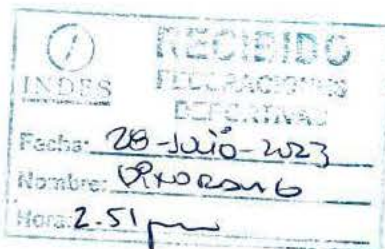 RECIBIDO
INDES
FEDERACIONES
DEPORTIVAS
Fecha: 28-Julio-2023
Nombre:
Hora: 2.51 pm